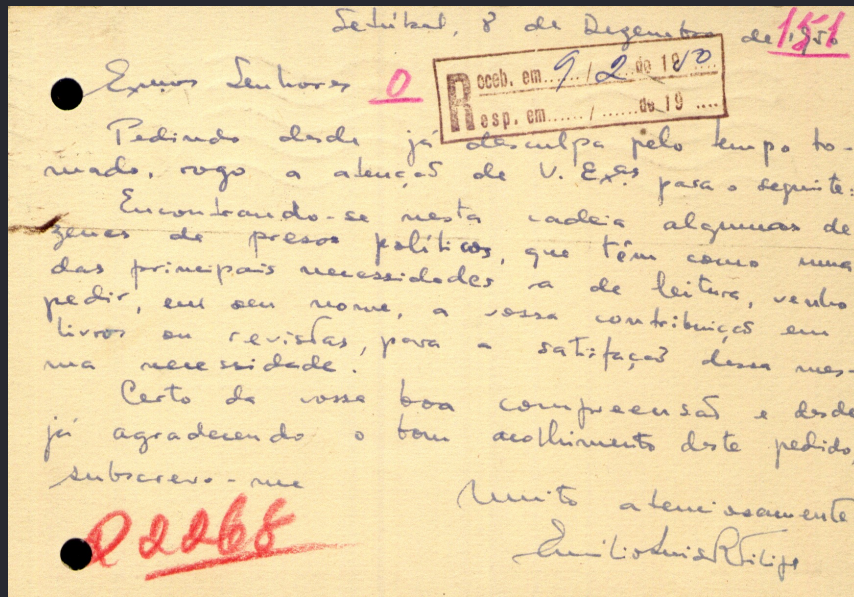 Setúbal, 8 de Dezembro de 1950
151
Exmos Senhores
O
Receb. em 9/2 de 19
Resp. em....../......de 19 ....
Pedindo desde já desculpa pelo tempo to-
mado, rogo a atenção de V. Exas para o seguinte:
Encontrando-se nesta cadeia algumas de-
zenas de presos políticos, que têm como uma
das principais necessidades a de leitura, venho
pedir, em seu nome, a vossa contribuição em
livros ou revistas, para a satisfação dessa mes-
ma necessidade.
Certo da vossa boa compreensão e desde
já agradecendo o bom acolhimento deste pedido,
subscrevo-me
Muito atenciosamente
Emílio Luis R Filipe
2268